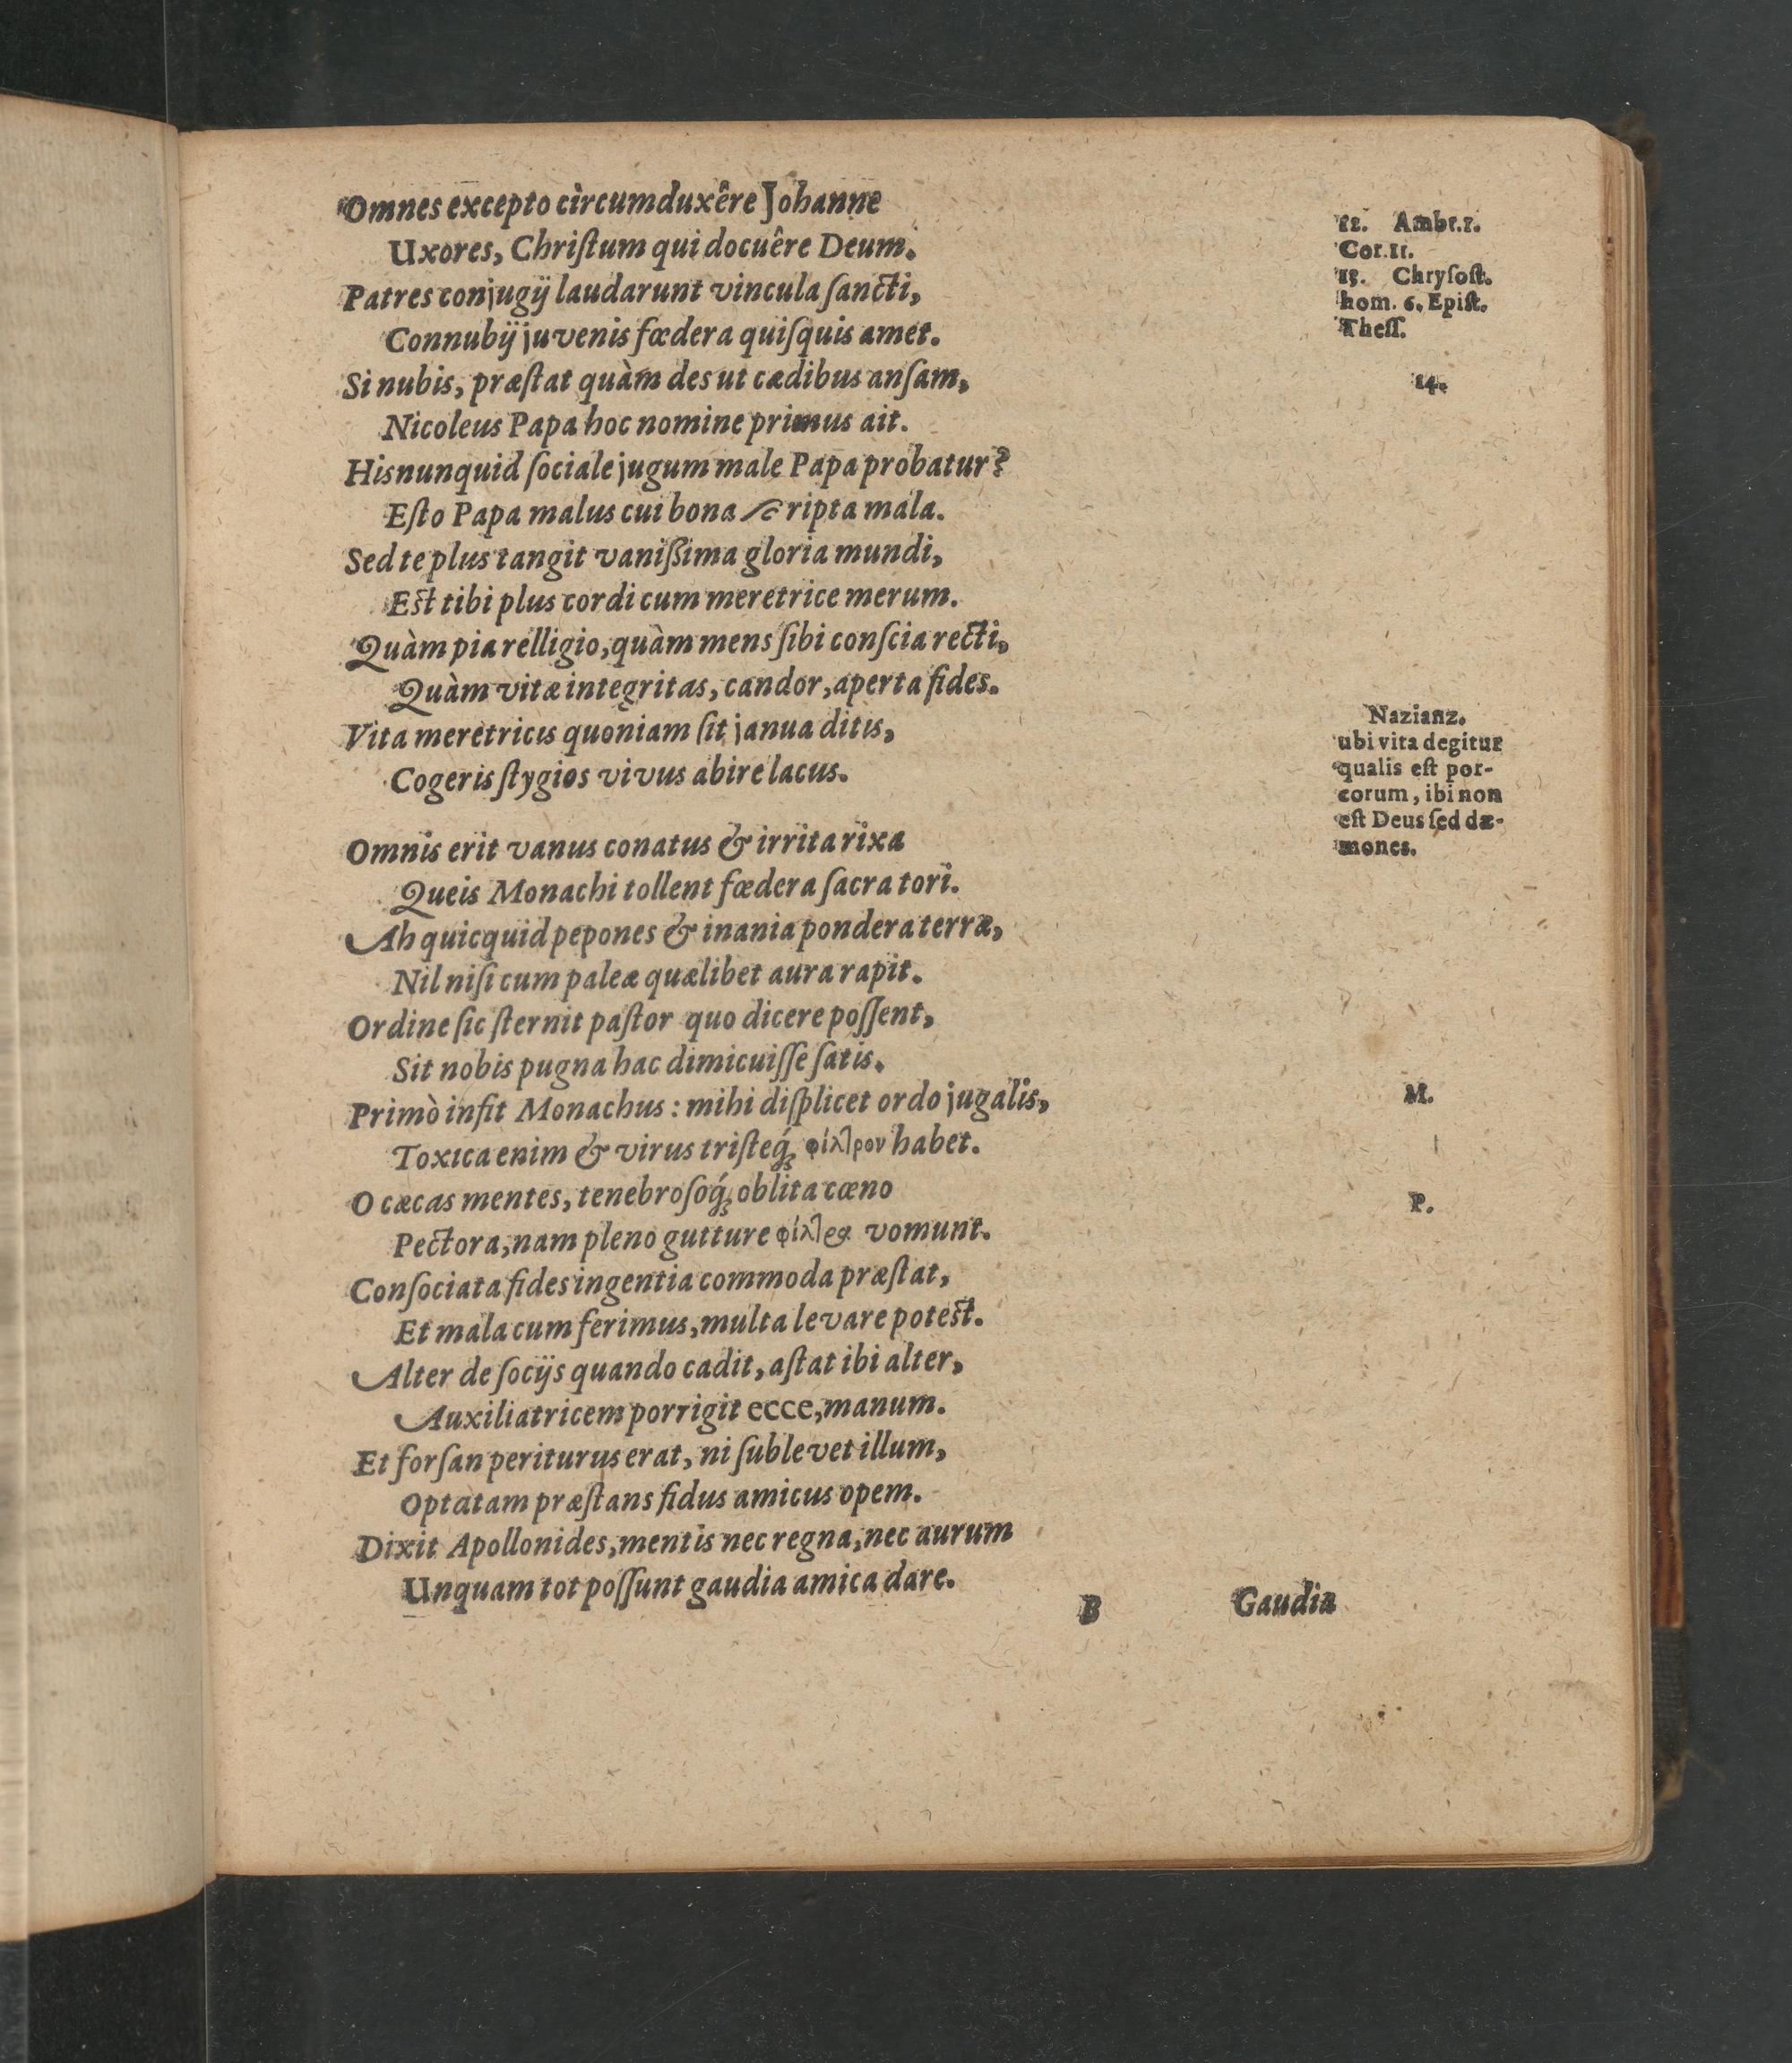 Omnes excepto circumduxêre Johanne
Uxores, Chriſtum qui docuêre Deum.
Patres conjugij laudarunt vincula ſancti,
Connubij juvenis fœdera quiſquis amet.
Si nubis, præſtat quàm des ut cædibus anſam,
Nicoleus Papa hoc nomine primus ait.
His nunquid ſociale jugum male Papa probatur?
Eſto Papa malus cui bona ſcripta mala.
Sed te plus tangit vanißima gloria mundi,
Eſt tibi plus cordi cum meretrice merum.
Quàm pia relligio, quàm mens ſibi conſcia recti,
Quàm vitæ integritas, candor, aperta fides.
Vita meretricis quoniam ſit janua ditis,
Cogeris ſtygios vivus abire lacus.
Omnis erit vanus conatus & irrita rixa
Queis Monachi tollent fœdera ſacra tori.
Ah quicquid pepones & inania pondera terræ,
Nil niſi cum paleæ quælibet aura rapit.
Ordine ſic ſternit paſtor quo dicere poſſent,
Sit nobis pugna hac dimicuiſſe ſatis.
Primò infit Monachus: mihi diſplicet ordo jugalis,
Toxica enim & virus triſteq́; φίλτρον habet.
O cæcas mentes, tenebroſoq́; oblita cœno
Pectora, nam pleno gutture φίλτρα vomunt.
Conſociata fides ingentia commoda præſtat,
Et mala cum ferimus, multa levare poteſt.
Alter de ſocijs quando cadit, aſtat ibi alter,
Auxiliatricem porrigit ecce, manum.
Et forſan periturus erat, ni ſublevet illum,
Optatam præſtans fidus amicus opem.
Dixit Apollonides, mentis nec regna, nec aurum
Unquam tot poſſunt gaudia amica dare.
B Gaudia
12. Ambr. 1.
Cor. 11.
13. Chryſoſt.
hom. 6. Epiſt.
Theſſ.
14.
Nazianz.
ubi vita degitur
qualis eſt por-
corum, ibi non
eſt Deus ſed dæ-
mones.
M.
P.